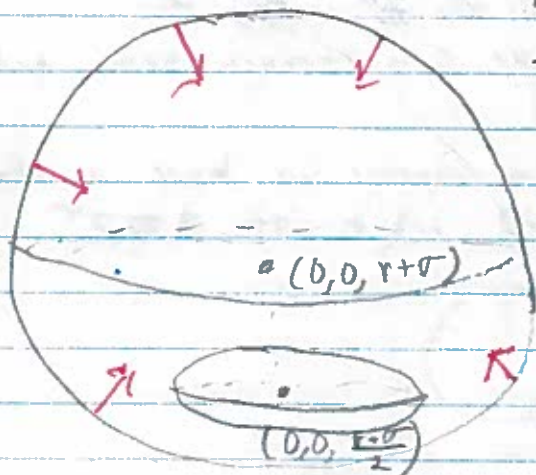 (0,0, r+σ)
(0,0, r+σ/2)